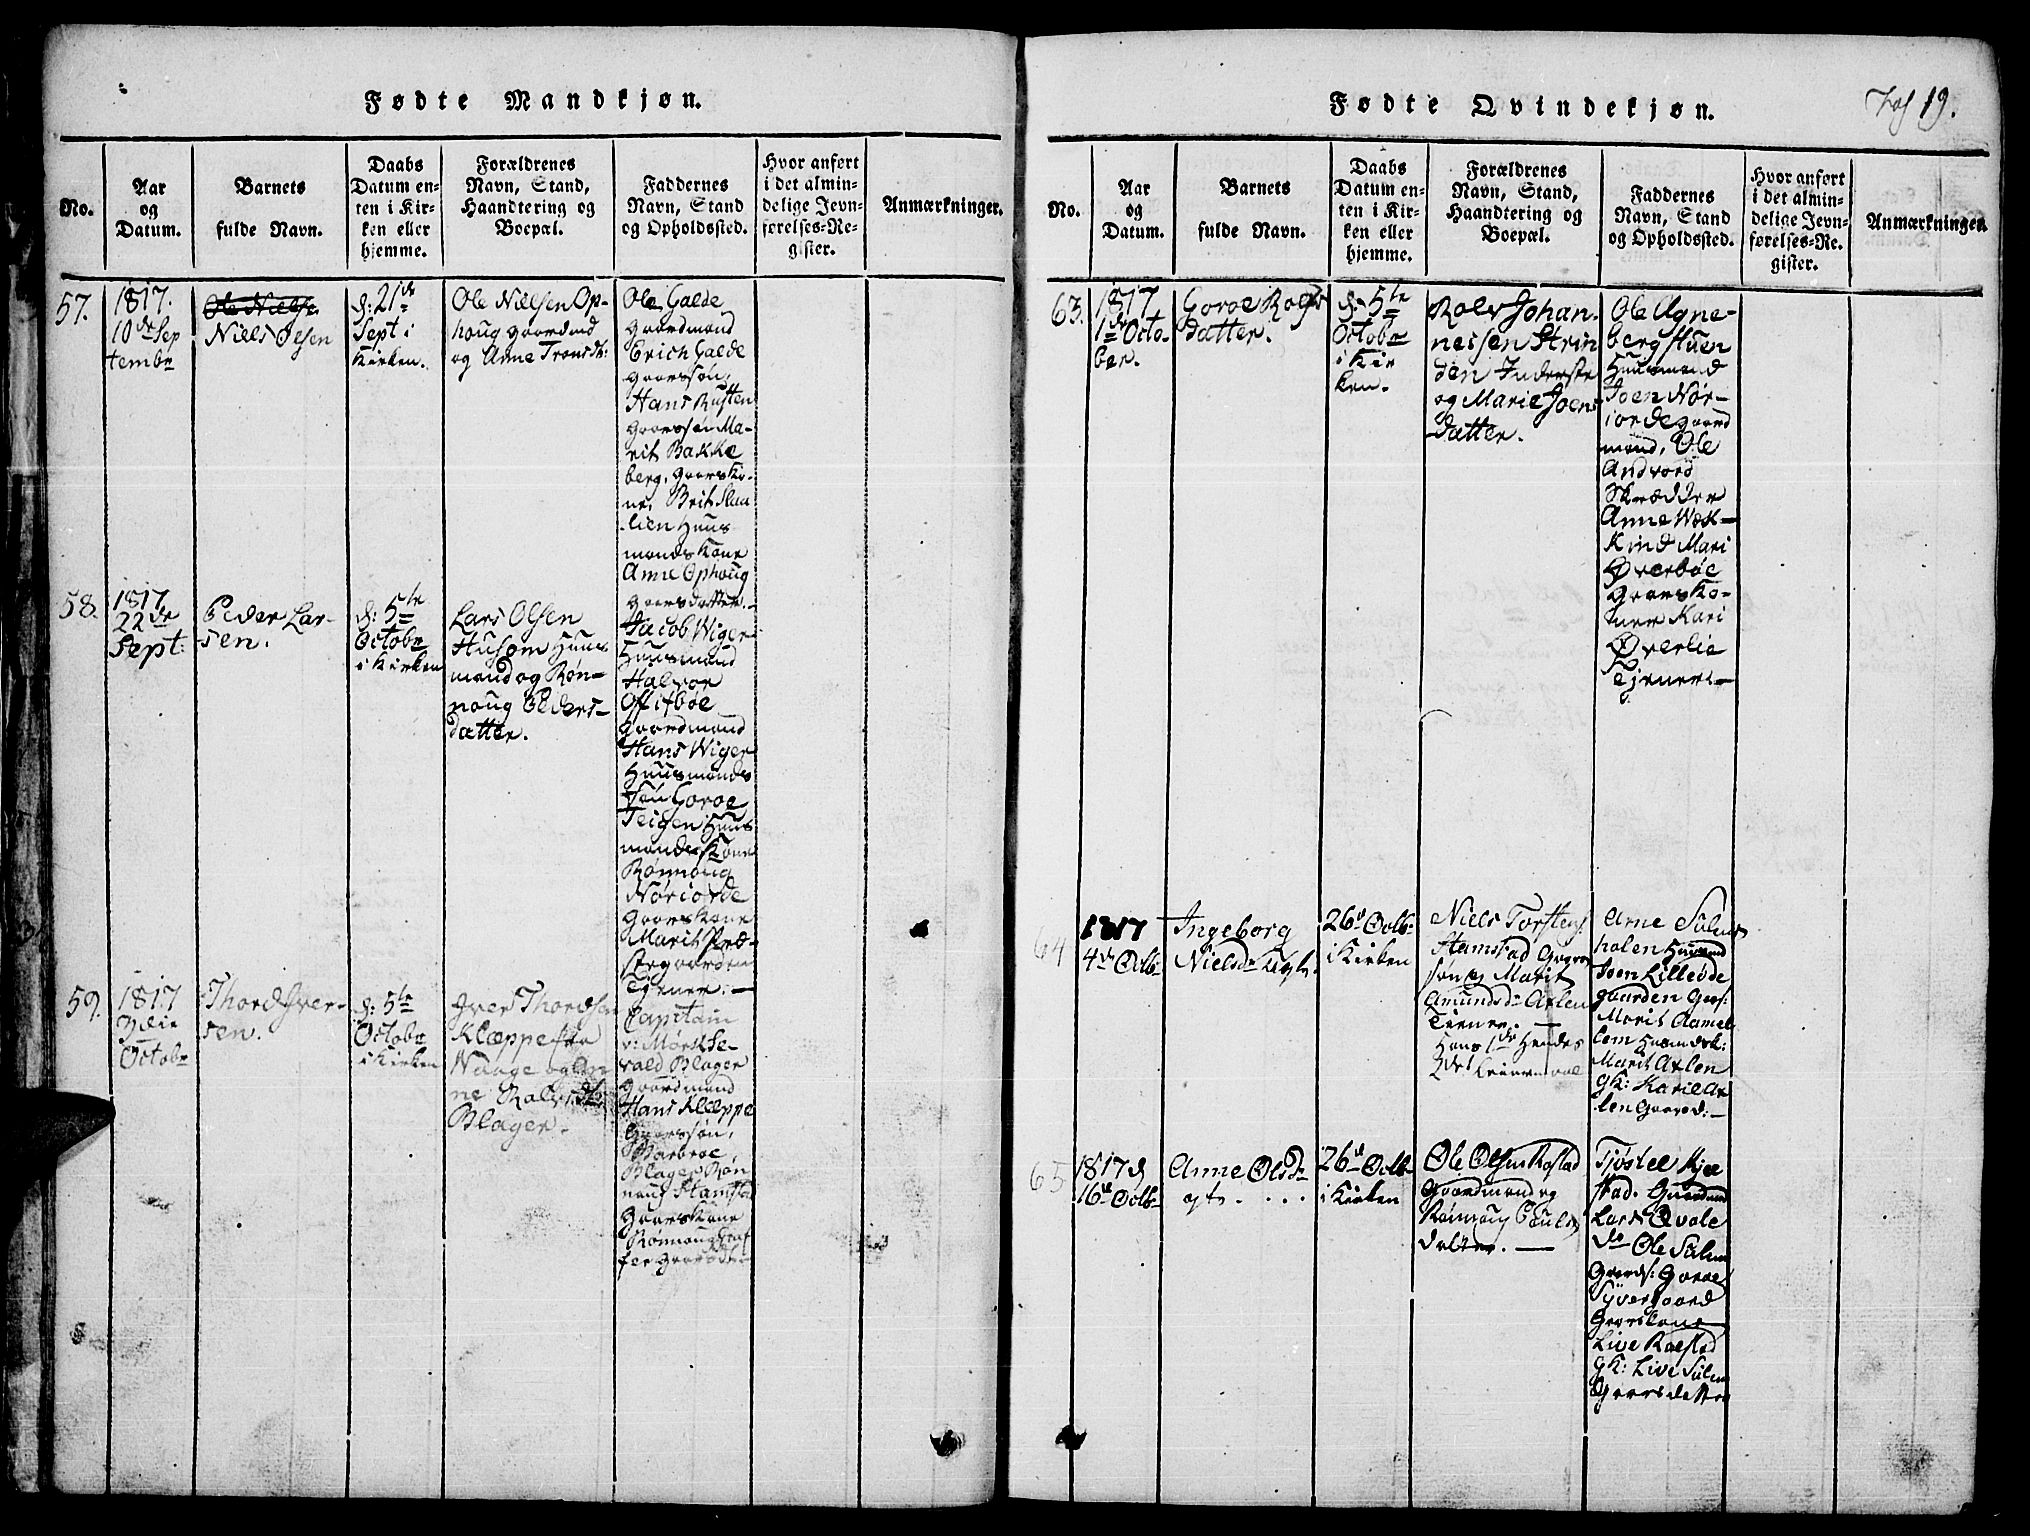 Fødte Mandkjøn.
No.
Aar
og
Datum.
Barnets
fulde Navn.
Daabs
Datum en-
ten i Kir-
ken eller
hjemme.
Forældrenes
Navn, Stand,
Haandtering og
Boepæl.
Faddernes
Navn, Stand
og Opholdssted.
Hvor anført
i det almin-
delige Jevn-
førelses-Re-
gister.
Anmærkninger.
57.
1817.
10de Sep
tembr
Ole Nielse
Niels Olsen
d: 21de
Sept i
Kirken.
Ole Nielsen Op-
houg gaardmd
og Anne Tronsdt:
Ole Galde
gaardmand
Erich Galde
gaarssøn,
Hans Rusten
gaarssøn Ma-
rit Bakke
berg, gaarsko-
ne, Brit Slaa-
lien Huus
mandskone
Anne Ophoug
gaarsdatter.
58.
1817
22de
Sept:
Peder Lar-
sen.
d: 5te
Octobr
i Kirken
Lars Olsen
Husom Huus
mand og Røn-
noug Peders-
datter.
Jacob Wiger
Huusmand
Halvor
Offigsbøe
gaardmand
Hans Wiger
Huusmands
søn Goroe
Teigen Huus
mandskone
Rønnoug
Nøriorde
gaarskone
Marit Præ-
stegaarden
Tjener. —
59.
1817
3die
Octobr
Thord Iver-
sen.
d: 5te
Octobr
i Kirken
Iver Thordsen
Kleppe fra
Waage og An-
ne Rolvsdtr
Blager.
Capitain
v: Mørk Se-
vald Blager
gaardmand
Hans Kleppe
gaarssøn,
Barbroe
Blager Røn
noug Stamstad
gaarskone
Rønnoug
gaarsdtr
Fødte Qvindekjøn.
Fol 19.
No.
Aar
og
Datum.
Barnets
fulde Navn.
Daabs
Datum en-
ten i Kir-
ken eller
hjemme.
Forældrenes
Navn, Stand,
Haandtering og
Boepæl.
Faddernes
Navn, Stand
og Opholdssted.
Hvor anført
i det almin-
delige Jevn-
førelses-Re-
gister.
Anmærkninger.
63.
1817
1de Octo-
ber.
Goroe Rolfs
datter.
d: 5te
Octobr
i Kir
ken.
Rolv Johan-
nessen Strin
den Inderste
og Marie Joens
datter.
Ole Agne-
berg stuen
Huusmand
Joen Nør-
iorde gaard
mand, Ole
Andvord
Skrædder
Anne Wøk-
Kind Mari
Øverbøe
gaarsko-
ner Kari
Øverlie
Tjener. —
64
1817
4de Octb
Ingeborg
Nielsdr
26d Octb:
i Kirken
Niels Torstens:
Stamstad gaars
søn og Marit
Amundsdr Arlen
Tiener. —
Hans 1de Hendes
2det Leiermaal
Arne Sulms
halen Huusmd
Joen Lillebøe
gaarden
Marit Aamel
lem Huusmdsk:
Marit Arlen
gk: Kari Ar
len gaarsd: —
65
1817 d
16d Octb
Anne Olsdr
26d Octb
i Kirken
Ole Olsen Rolstad
gaardmand og
Rønnoug Pouls
datter. —
Tjøstel Kje
stad. Gaardmd
Lars Qvale
do Ole Sulm
gaards: Goroe
Sÿvergaard
gaarskone
Live Rolstad
gk: Live Sulm
gaarsdatter